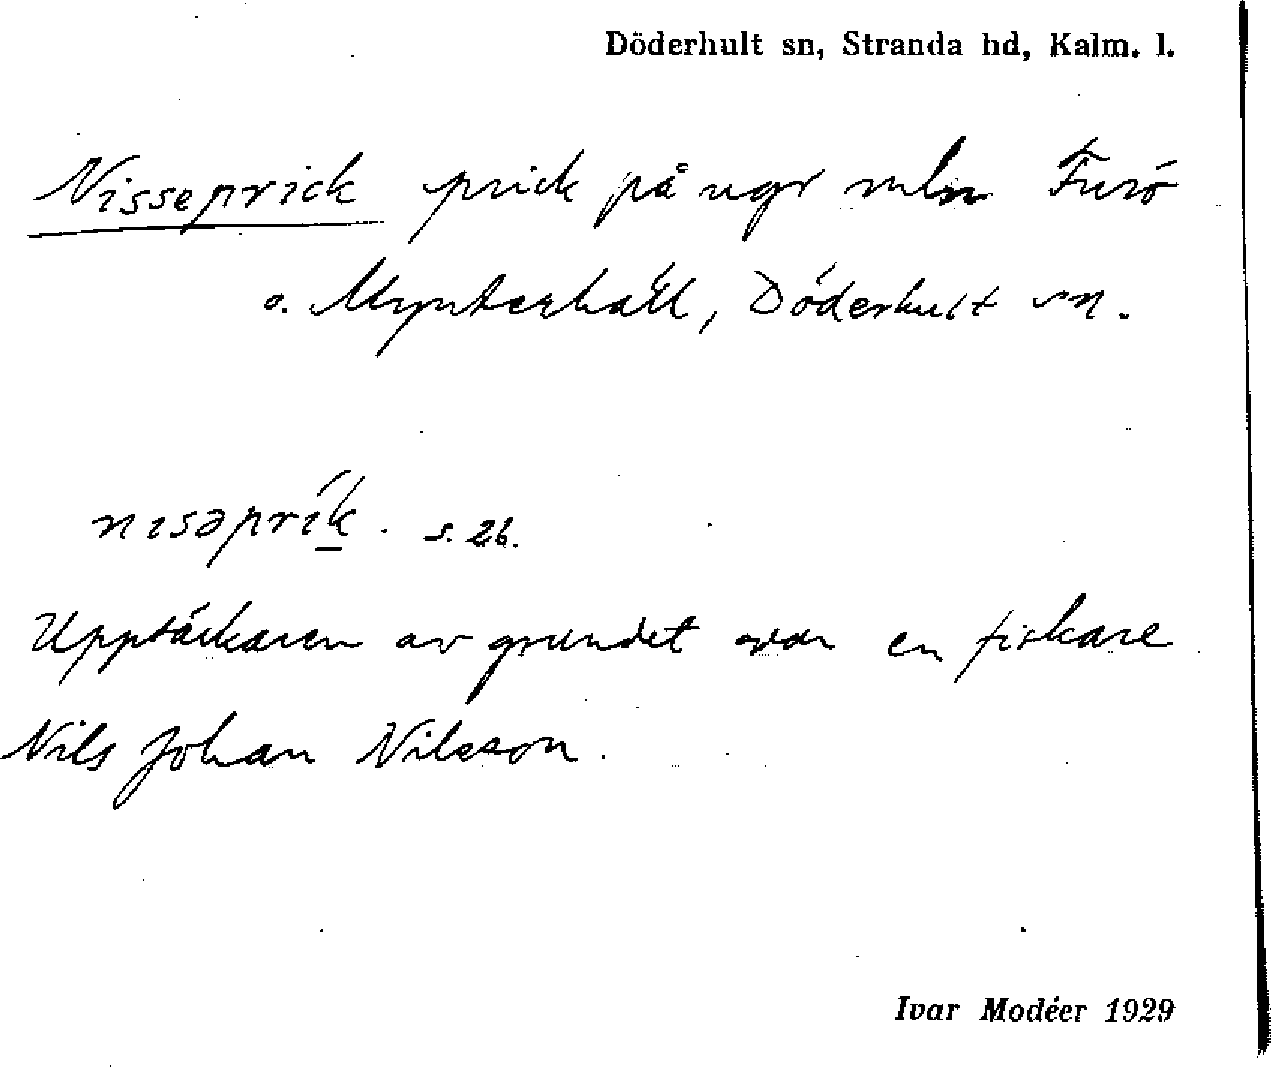 Döderhult sn, Stranda hd, Kalm. l.
Nisseprick prick på ugr mln Furö
o. Mynterhäll, Döderhult sn.
nɪsəprík. s. 26.
Upptäckaren av grundet var en fiskare
Nils Johan Nilsson.
Ivar Modéer 1929